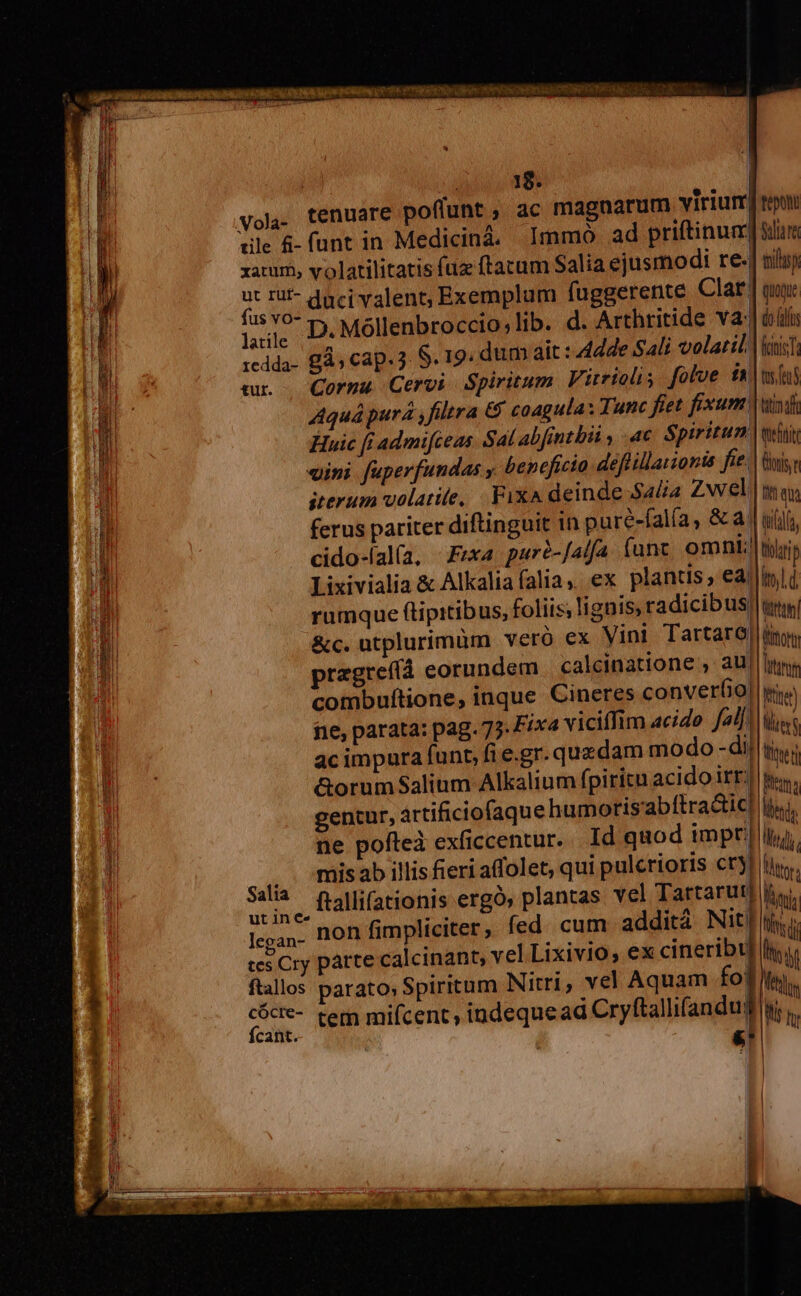 18.
tenuare poſſunt, ac magnarum virium
ſunt in Mediciná. Immò ad priſtinum
volatilitatis ſuæ ſtatum Salia ejusmodi re-
duci valent, Exemplum ſuggerente Clar
D. Möllenbroccio, lib. d. Arthritide va-
gâ, cap. 3. §. 19. dum ait: Adde Sali volatil
Cornu Cervi Spiritum Vitrioli; ſolve in
Aquâ purâ, filtra & coagula: Tunc fiet fixum
Huic ſi admiſceas Sal abſinthii, ac Spiritum
vini ſuperfundas, beneficio deſtillationis fiet
iterum volatile. Fixa deinde Salia Zwel
ferus pariter diſtinguit in purè-ſalſa, & a
cido-ſalſa. Fixa purè-ſalſa ſunt omni:
Lixivialia & Alkalia ſalia, ex plantis, ea
rumque ſtipitibus, foliis, lignis, radicibus
&c. utplurimùm verò ex Vini Tartaro
prægreſſâ eorundem calcinatione, au
combuſtione, inque Cineres converſio
ne, parata: pag. 73. Fixa viciſſim acido ſalſ
ac impura ſunt, ſi e.gr. quædam modo-di
ctorum Salium Alkalium ſpiritu acido irri
gentur, artificioſaque humoris abſtractio
ne poſteà exſiccentur. Id quod impri
mis ab illis fieri aſſolet, qui pulcrioris cry
ſtalliſationis ergò, plantas vel Tartarum
non ſimpliciter, ſed cum additâ Nitri
parte calcinant, vel Lixivio, ex cineribus
parato, Spiritum Nitri, vel Aquam for
tem miſcent, indeque ad Cryſtalliſandum
Vola-
tile fi-
xatum,
ut rur-
ſus vo-
latile
redda-
tur.
Salia
ut in e-
legan-
tes Cry
ſtallos
cócre-
ſcant.